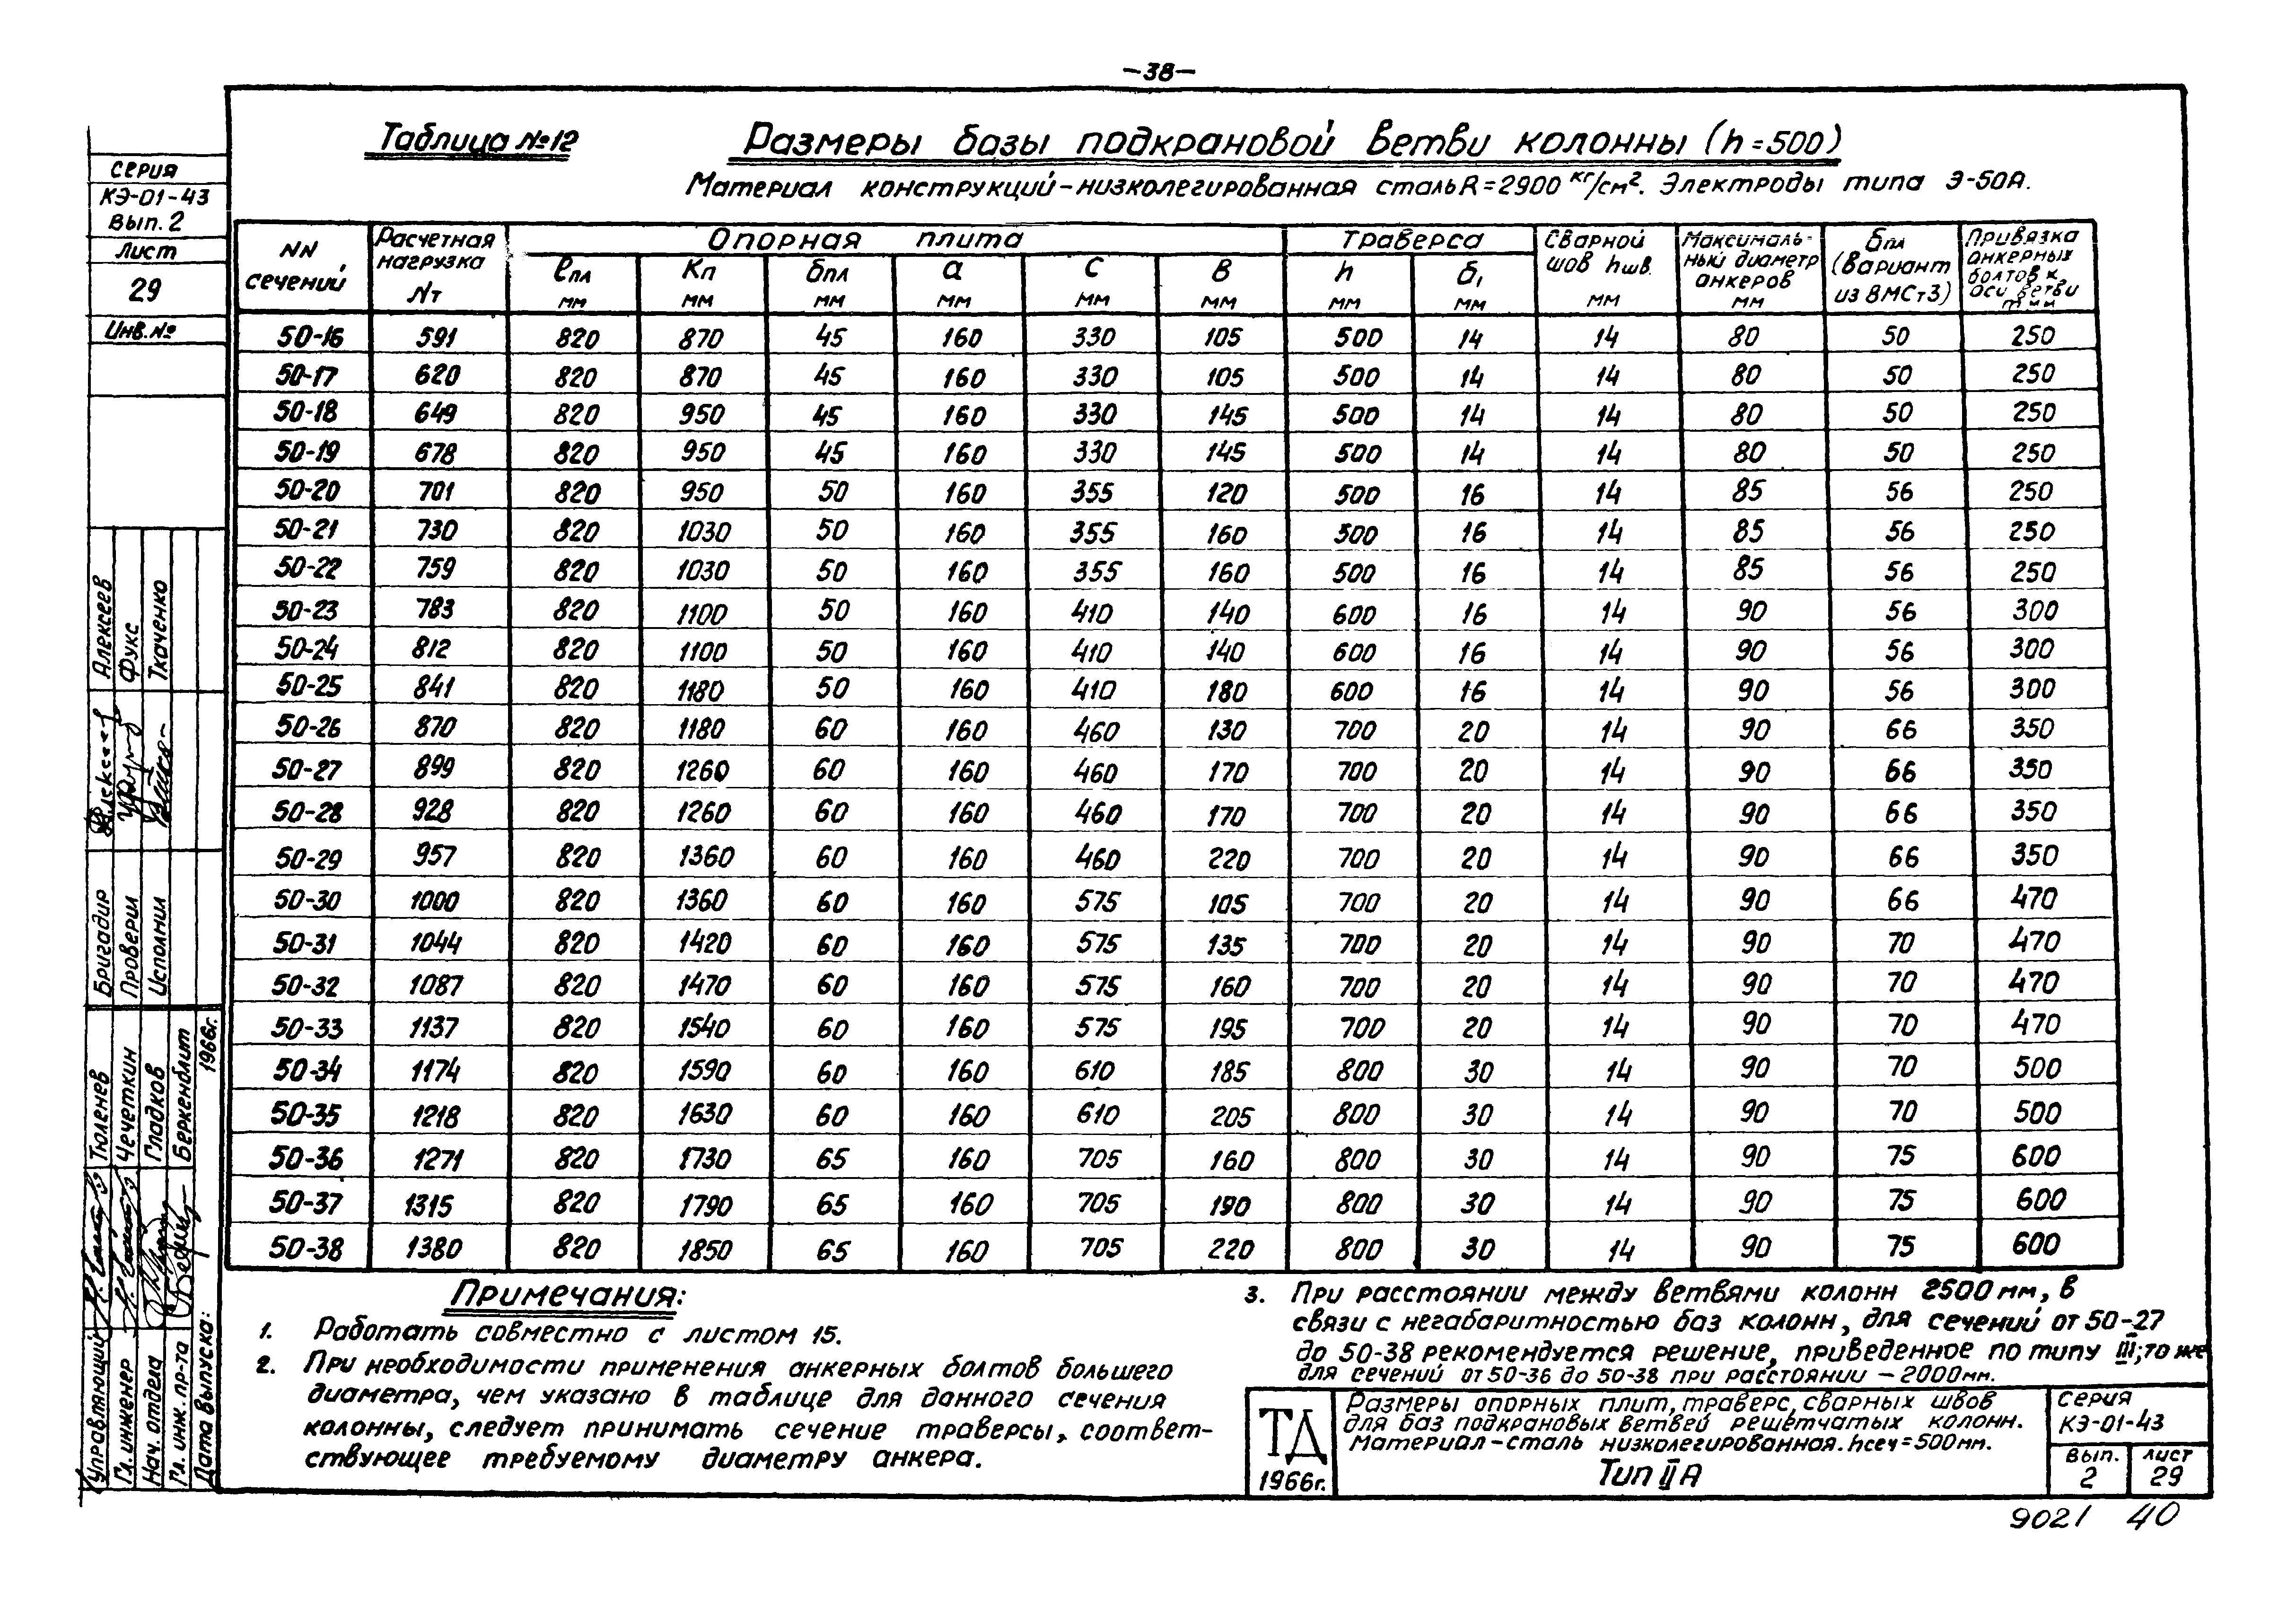 -38-
Таблица №12 Размеры базы подкрановой ветви колонны (h=500)
Материал конструкций-низколегированная сталь R=2900 кг/см². Электроды типа Э-50А.
NN сечений
Расчетная нагрузка Nт
Опорная плита
ℓпл мм
Kп мм
δпл мм
a мм
c мм
в мм
Траверса
h мм
δ₁ мм
Сварной шов hшв. мм
Максималь-
ный диаметр
анкеров
мм
δпл
(вариант
из ВМСт3)
Привязка
анкерных
болтов к
оси ветви
50-16 591 820 870 45 160 330 105 500 14 14 80 50 250
50-17 620 820 870 45 160 330 105 500 14 14 80 50 250
50-18 649 820 950 45 160 330 145 500 14 14 80 50 250
50-19 678 820 950 45 160 330 145 500 14 14 80 50 250
50-20 701 820 950 50 160 355 120 500 16 14 85 56 250
50-21 730 820 1030 50 160 355 160 500 16 14 85 56 250
50-22 759 820 1030 50 160 355 160 500 16 14 85 56 250
50-23 783 820 1100 50 160 410 140 600 16 14 90 56 300
50-24 812 820 1100 50 160 410 140 600 16 14 90 56 300
50-25 841 820 1180 50 160 410 180 600 16 14 90 56 300
50-26 870 820 1180 60 160 460 130 700 20 14 90 66 350
50-27 899 820 1260 60 160 460 170 700 20 14 90 66 350
50-28 928 820 1260 60 160 460 170 700 20 14 90 66 350
50-29 957 820 1360 60 160 460 220 700 20 14 90 66 350
50-30 1000 820 1360 60 160 575 105 700 20 14 90 66 470
50-31 1044 820 1420 60 160 575 135 700 20 14 90 70 470
50-32 1087 820 1470 60 160 575 160 700 20 14 90 70 470
50-33 1137 820 1540 60 160 575 195 700 20 14 90 70 470
50-34 1174 820 1590 60 160 610 185 800 30 14 90 70 500
50-35 1218 820 1630 60 160 610 205 800 30 14 90 70 500
50-36 1271 820 1730 65 160 705 160 800 30 14 90 75 600
50-37 1315 820 1790 65 160 705 190 800 30 14 90 75 600
50-38 1380 820 1850 65 160 705 220 800 30 14 90 75 600
Примечания:
1. Работать совместно с листом 15.
2. При необходимости применения анкерных болтов большего
диаметра, чем указано в таблице для данного сечения
колонны, следует принимать сечение траверсы, соответ-
ствующее требуемому диаметру анкера.
3. При расстоянии между ветвями колонн 2500мм, в
связи с негабаритностью баз колонн, для сечений от 50-27
до 50-38 рекомендуется решение, приведенное по типу III; то же
для сечений от 50-36 до 50-38 при расстоянии - 2000мм.
ТД
1966г.
Размеры опорных плит, траверс, сварных швов
для баз подкрановых ветвей решетчатых колонн.
Материал-сталь низколегированная. hсеч=500мм.
Тип IIА
Серия
КЭ-01-43
Вып.
2
Лист
29
9021 40
Серия
КЭ-01-43
Вып. 2
Лист
29
Инв. №
Алексеев
Фукс
Ткаченко
Бригадир
Проверил
Исполнил
Тюленев
Чечеткин
Гладков
Беркенблит
1966г.
Управляющий
Гл. инженер
Нач. отдела
Гл. инж. пр-та
Дата выпуска: